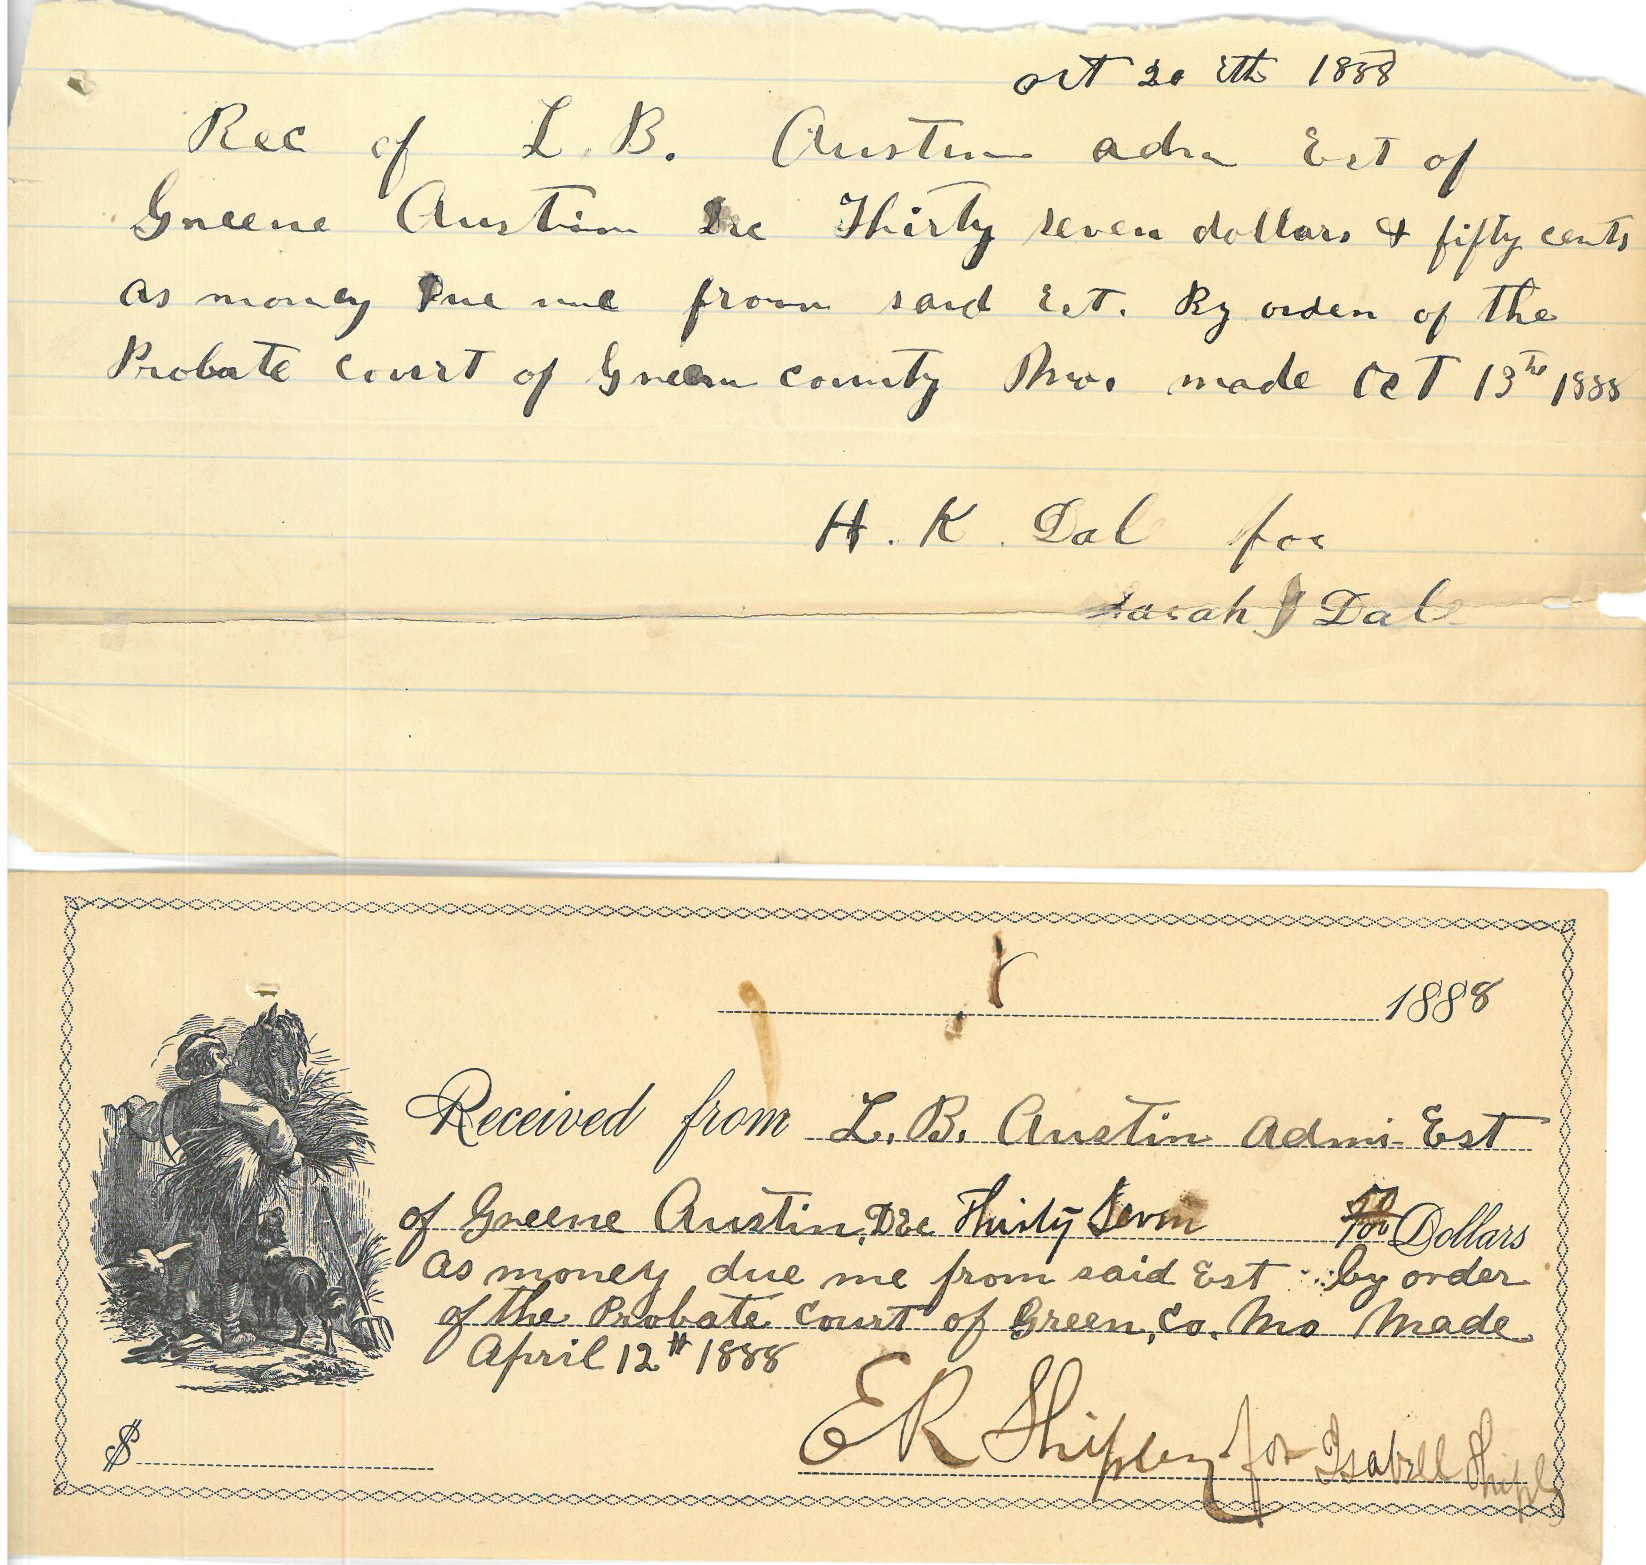 oct 20 th 1888
Rec of L. B. Austin adm Est of
Greene Austin Dec Thirty seven dollars & fifty cents
as money Due me from said Est. By order of the
Probate court of Green county Mo. made Oct 13th 1888
H. K. Dal for
Sarah J Dal
1888
Received from L. B. Austin Admi Est
of Greene Austin, Dec Thirty Seven 50/100 Dollars
as money due me from said Est by order
of the Probate court of Green, Co. Mo Made
April 12th 1888
$
E R Shipley for Isabell Shiply